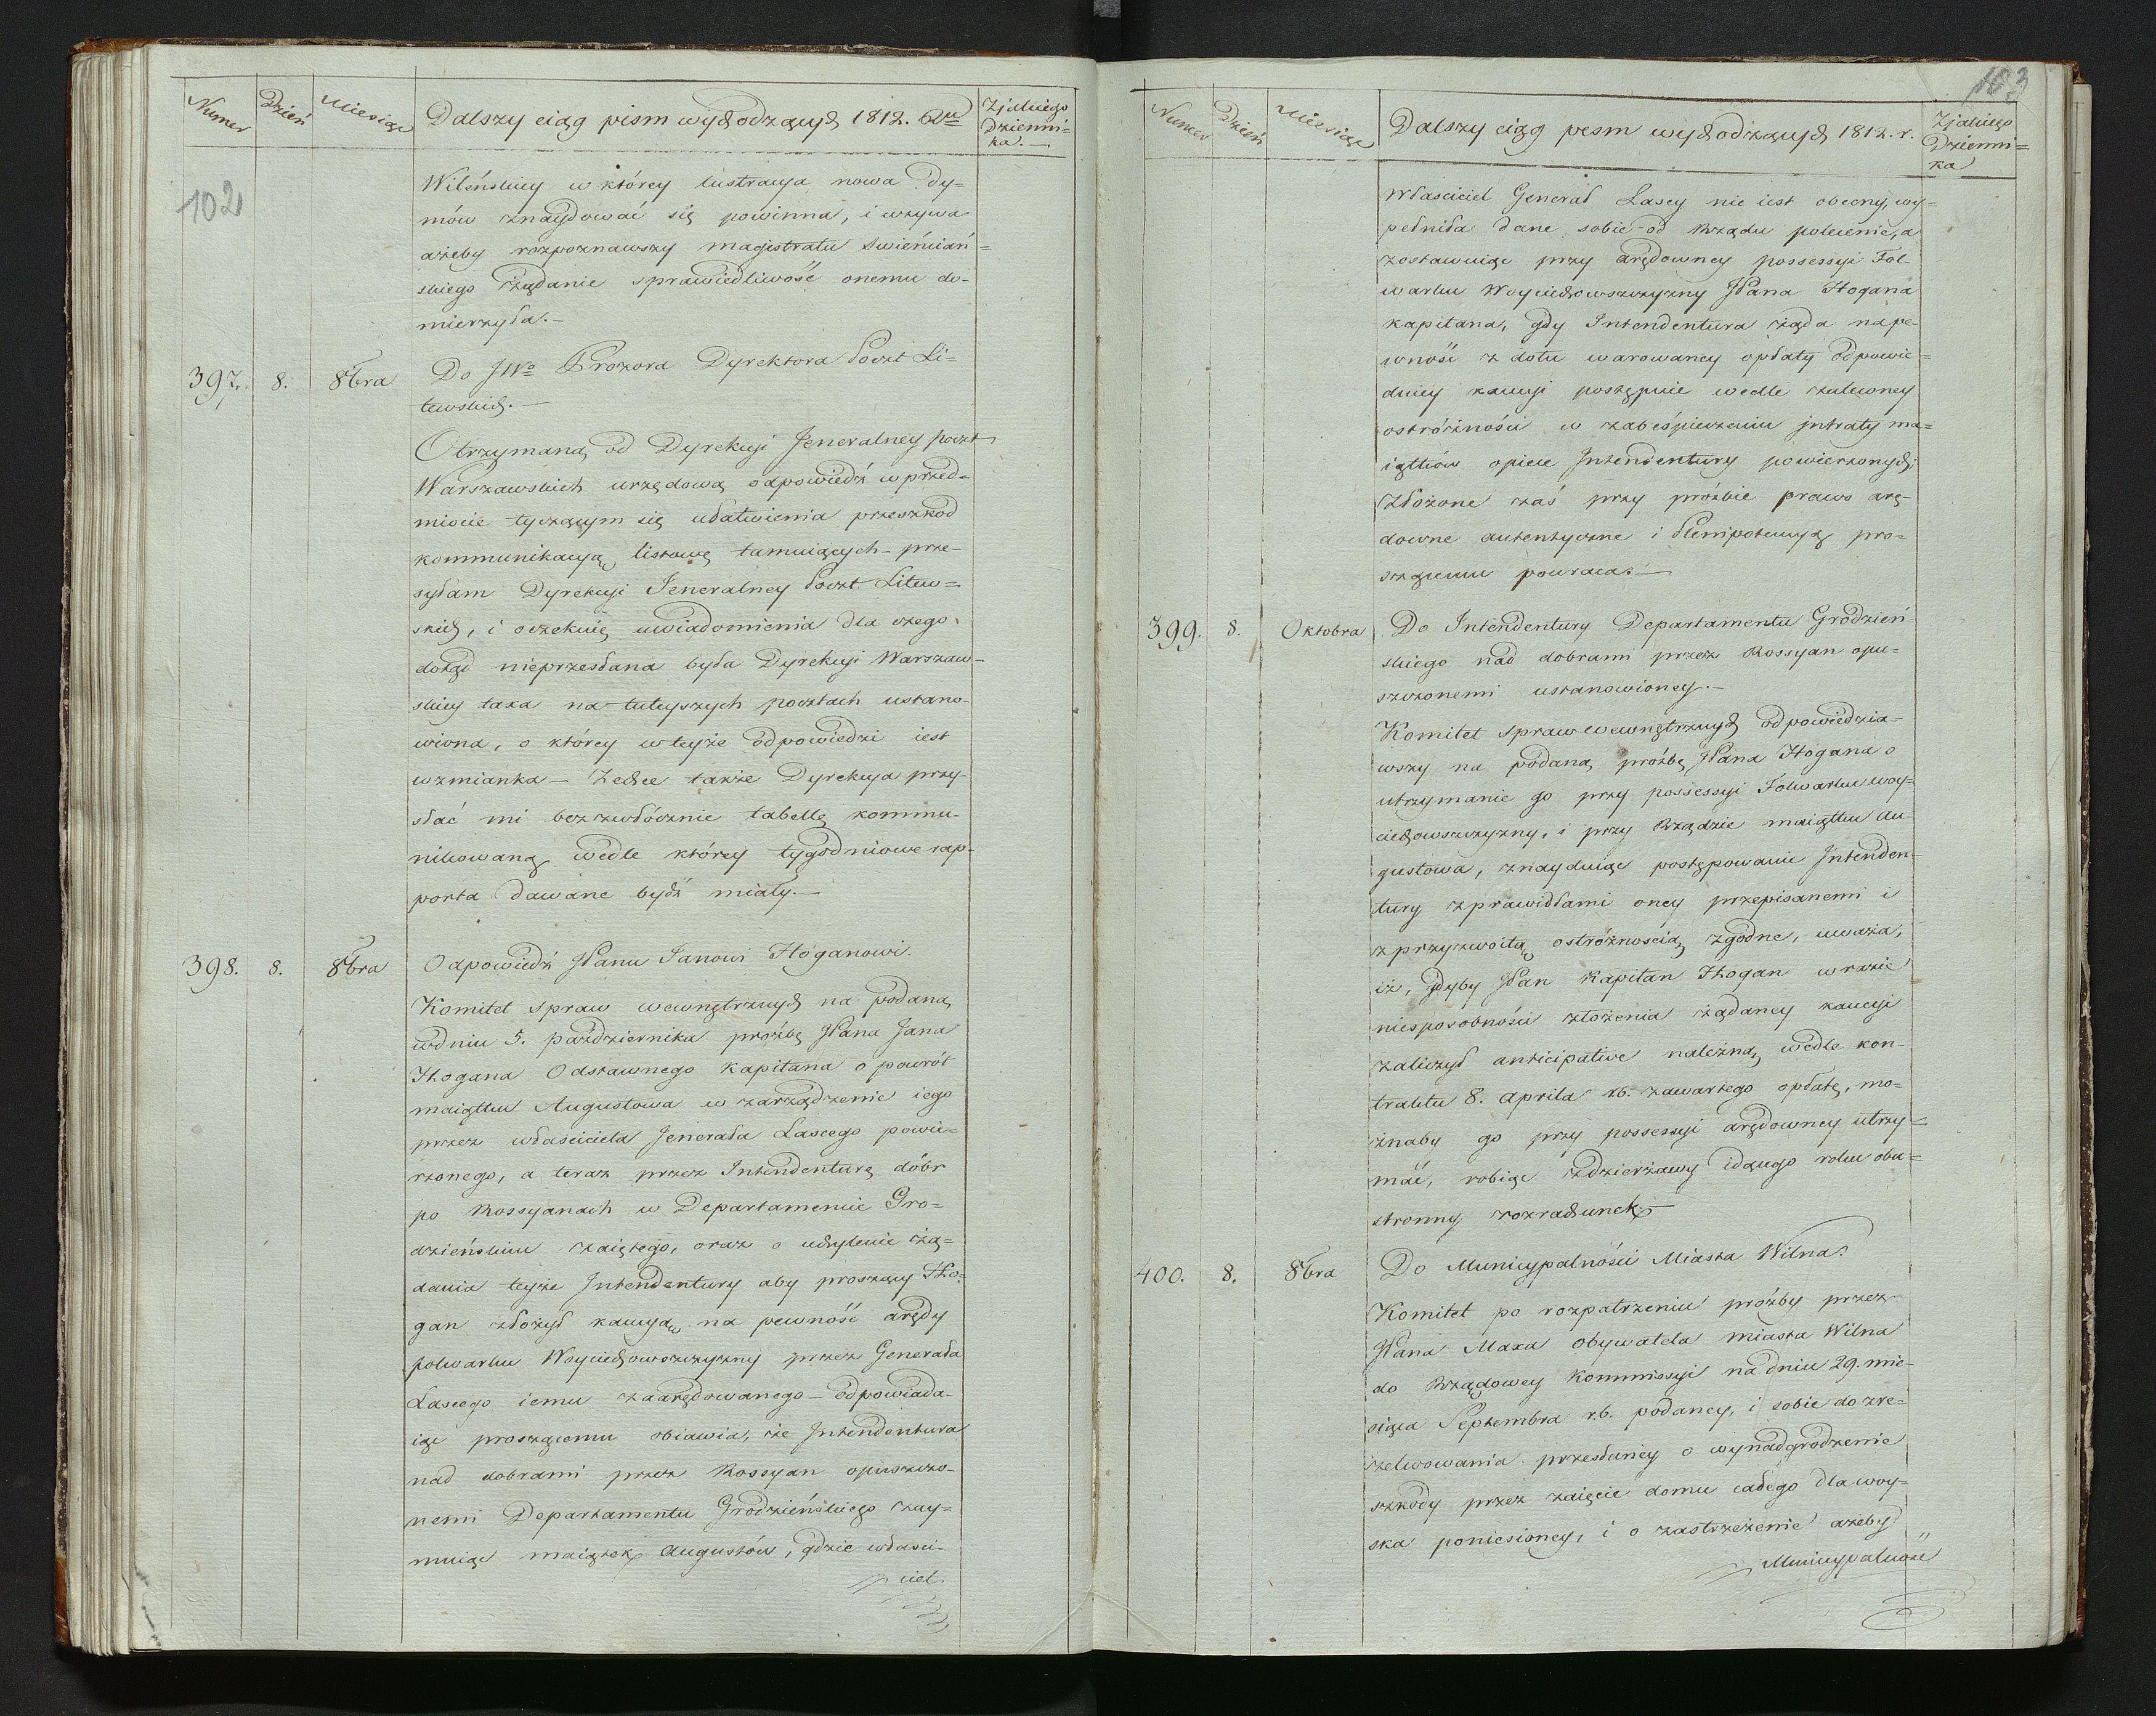 Numer Dzień Miesiąc Dalszy ciąg pism wychodzących 1812. Z jakiego Dzienni=
ka.—
102
Wileńskiey w którey lustracya nowa dy=
mów znaydować się powinna, i wzywa
ażeby rozpoznawszy magistratu Swięciań=
skiego żądanie sprawiedliwość onemu do=
mierzyła.—
397. 8. 8bra Do JWo Prozora Dyrektora Poczt Li=
tewskich.—
Otrzymaną od Dyrekcyi Jeneralney poczt
Warszawskich urzędową odpowiedź w przed=
miocie tyczącym się ułatwienia przeszkod
kommunikacyą listową tamuiących — prze=
syłam Dyrekcyi Jeneralney Poczt Litew=
skich, i oczekuię uwiadomienia dla czego
dotąd nieprzesłana była Dyrekcyi Warszaw=
skiey taxa na tuteyszych pocztach ustano=
wiona, o którey w teyże odpowiedzi iest
wzmianka — Zechce także Dyrekcya przy=
słać mi bezzwłócznie tabellę kommu=
nikowaną wedle którey tygodniowe rap=
porta dawane bydź miały.—
398. 8. 8bra Odpowiedź JPanu Janowi Hoganowi.
Komitet spraw wewnętrznych na podaną
w dniu 5. października prośbę JPana Jana
Hogana Odstawnego Kapitana o powrót
maiątku Augustowa w zarządzenie iego
przez właściciela Jenerała Lascego powie=
rzonego, a teraz przez Intendenturę dóbr
po Rossyanach w Departamencie Gro=
dzieńskim zaiętego, oraz o uchylenie żą=
dania teyże Intendentury aby proszący Ho=
gan złożył kaucyą na pewność arędy
folwarku Woyciechowszczyzny przez Generała
Lascego iemu zaarędowanego — odpowiada=
iąc proszącemu obiawia, że Intendentura
nad dobrami przez Rossyan opuszczo=
nemi Departamentu Grodzieńskiego zay=
muiąc maiątek Augustów, gdzie właści=
ciel
103
Numer Dzień Miesiąc Dalszy ciąg pism wychodzących 1812. r. Z jakiego
Dzienni=
ka
Właściciel Generał Lascy nie iest obecny, wy=
pełniła dane sobie od Rządu polecenie, a
zostawuiąc przy arędowney possessyi Fol=
warku Woyciechowszczyzny JPana Hogana
kapitana, gdy Intendentura żąda na pe=
wność z dołu warowaney opłaty odpowie=
dniey kaucyi postępuie wedle zaleconey
ostróżności w zabeśpieczeniu intraty ma=
iątków opiece Intendentury powierzonych;
złożone zaś przy prośbie prawo arę=
downe autentyczne i Plenipotencyą pro=
szącemu powraca.—
399. 8. Oktobra Do Intendentury Departamentu Grodzień=
skiego nad dobrami przez Rossyan opu=
szczonemi ustanowioney.—
Komitet spraw wewnętrznych odpowiedzia=
wszy na podaną prośbę JPana Hogana o
utrzymanie go przy possessyi Folwarku woy=
ciechowszczyzny, i przy Rządzie maiątku Au=
gustowa, znayduiąc postępowanie Intenden=
tury z prawidłami oney przepisanemi i
z przyzwoitą ostróżnością zgodne, uważa,
iż, gdyby JPan Kapitan Hogan w razie
niesposobności złożenia żądaney kaucyi
zaliczył anticipative należną wedle kon=
traktu 8. Aprila rb. zawartego opłatę, mo=
żnaby go przy possessyi arędowney utrzy=
mać, robiąc z dzierżawy idącego roku obu=
stronny rozrachunek.—
400. 8. 8bra Do Municypalności Miasta Wilna.
Komitet po rozpatrzeniu prośby przez
JPana Maxa obywatela miasta Wilna
do Rządowey Kommissyi na dniu 29. mie=
siąca Septembra r.b. podaney, i sobie do zre=
zelwowania przesłaney o wynadgrodzenie
szkody przez zaięcie domu całego dla woy=
ska poniesioney, i o zastrzeżenie ażeby
Municypalność